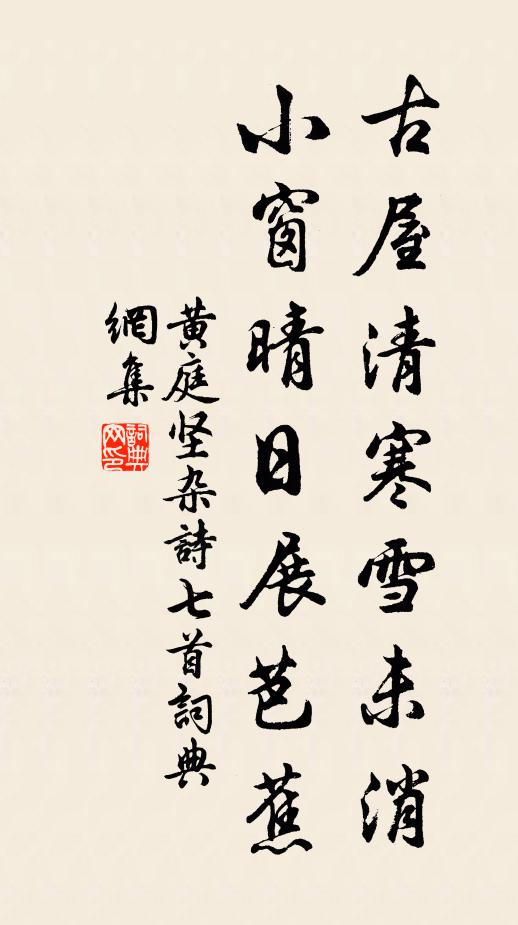 古屋清寒雪未消
小窗晴日展芭蕉
黄庭坚杂詩七首詞典
網集
詞典
网印